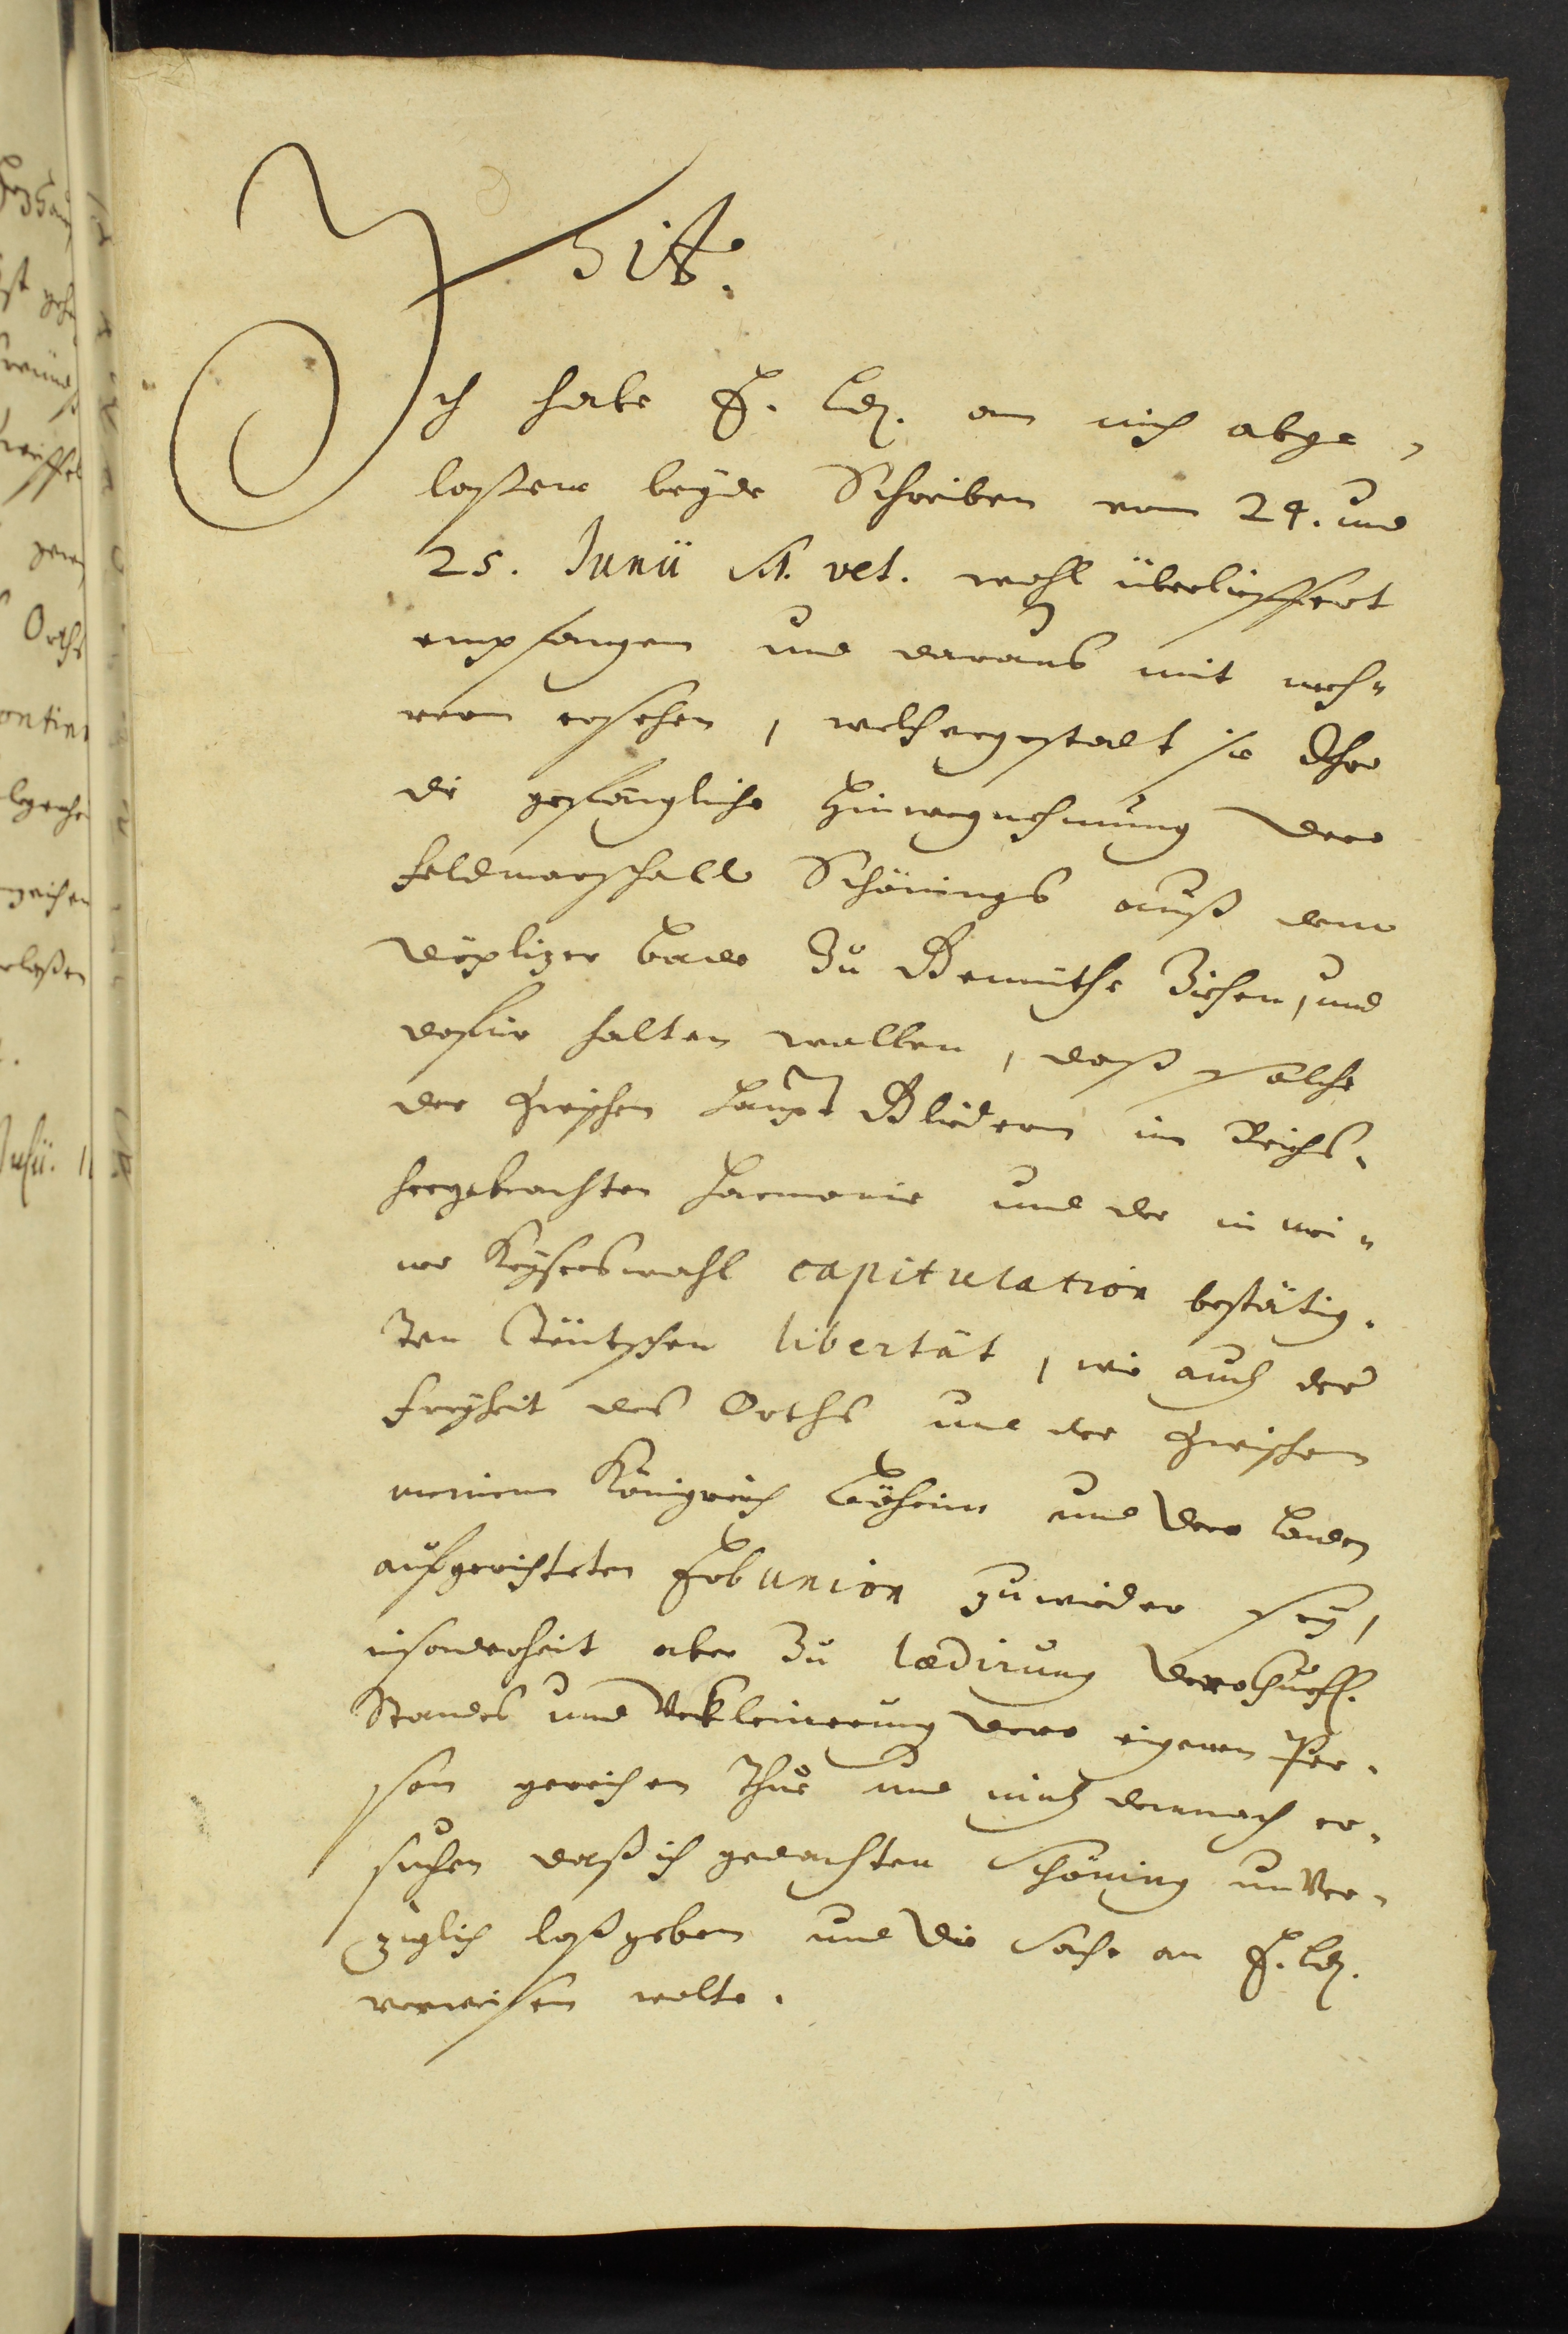 Tit.
Ich habe E. Ld. an mich abge¬
laßene beyde Schreiben vom 24. und
25. Junii St. vet. wohl überlieffert
empfangen und daraus mit meh¬
rern ersehen, welchergestalt sie Ihro
die gefängliche Hinwegnehmung dero
Feldmarschall Schönings auß dem
Töplizer Bade Zu Gemüthe Ziehen, und
dafür halten wollen, daß solche
der zwischen Haupt Gliedern im Reichs¬
hergebrachten Harmonie und der in mei¬
ner Kayserwahl capitulation bestätig¬
ten Teutschen libertät, wie auch der
Freyheit des Orths und der zwischen
meinem Königreich Böheim und dero Landen
aufgerichteten Erbunion zuwieder sey,
insonderheit aber Zu lædirung dero Churfl.
Standes und Verkleinerung dero eigenen Per¬
son gereichen thue und mich demnach er¬
suchen daß ich gedachten Schöning unver¬
züglich loßgeben und die Sache an E. Ld.
verweisen wolte.